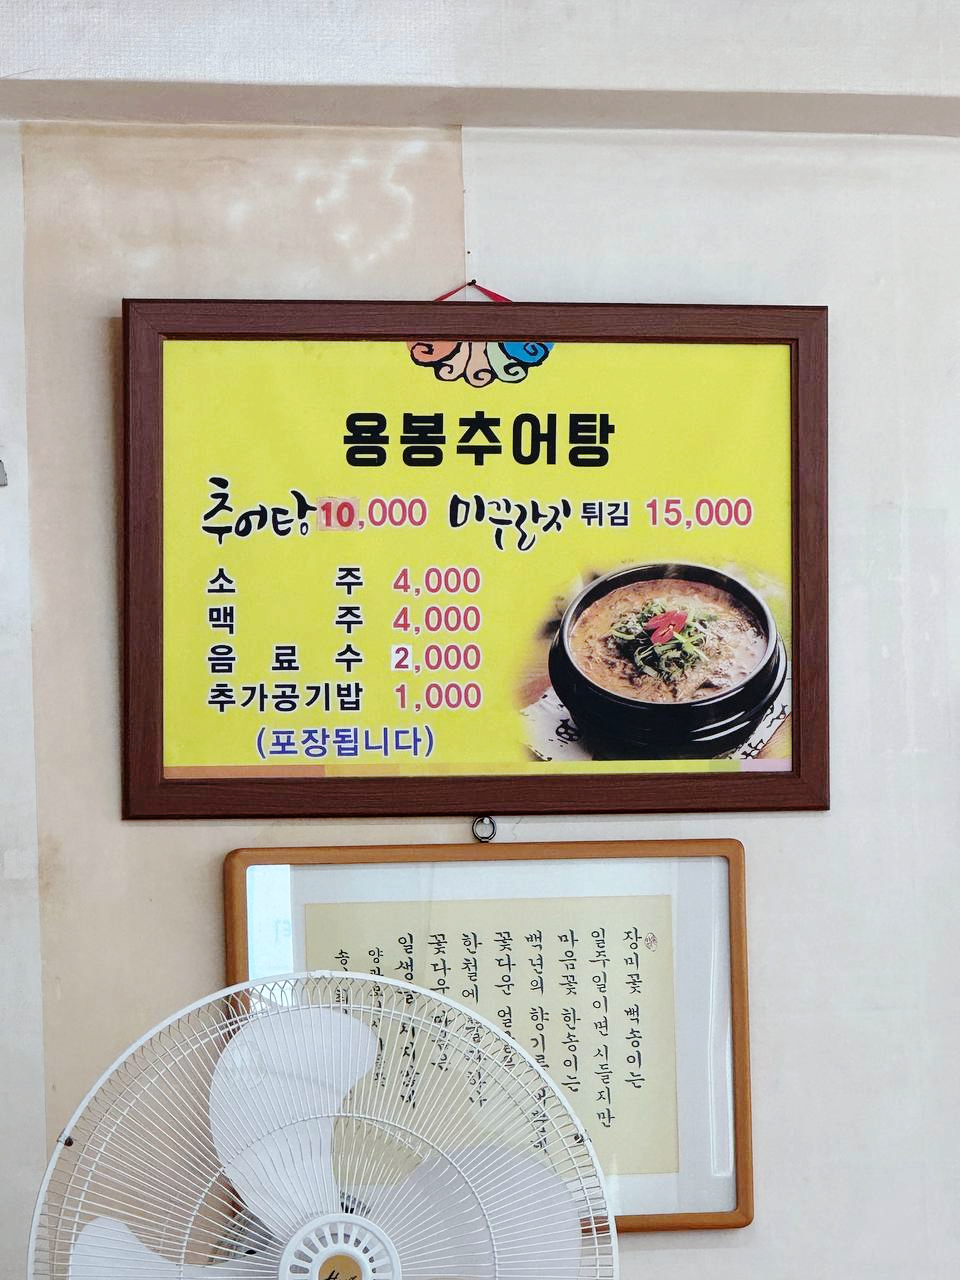 용봉추어탕
추어탕 10,000 미꾸라지 튀김 15,000
소 주 4,000
맥 주 4,000
음 료 수 2,000
추가공기밥 1,000
(포장됩니다)
장미꽃 백송이는
일주일이면 시들지만
마음꽃 한송이는
백년의 향기를
꽃다운
한철에
꽃다우
일생을